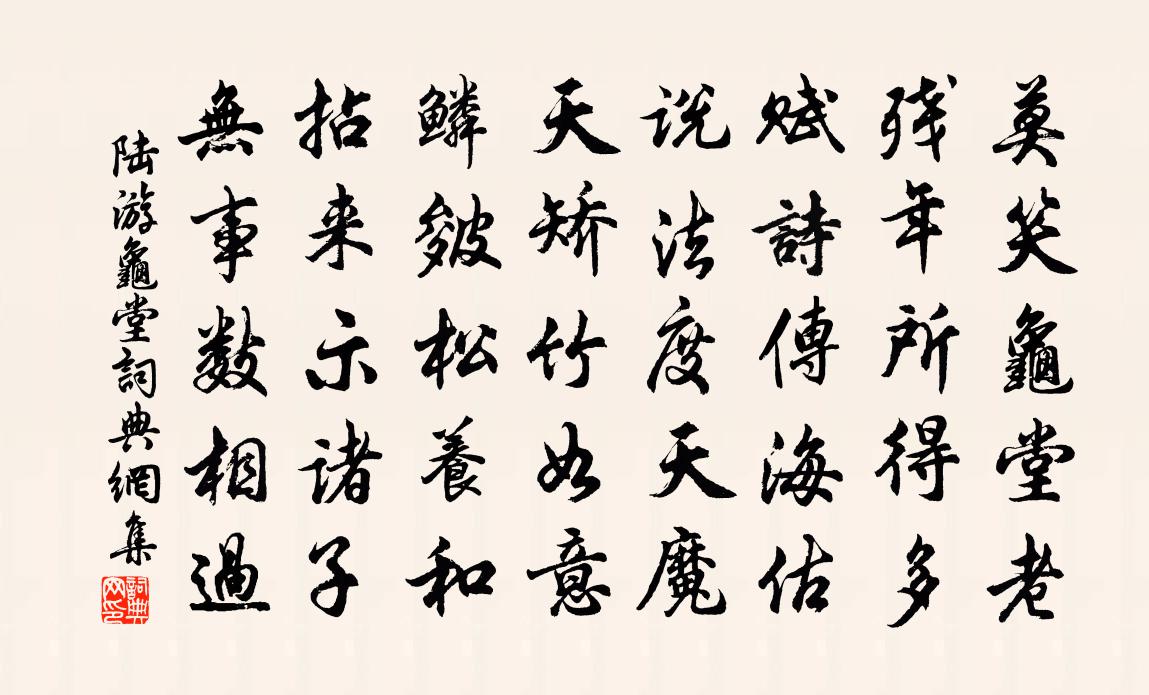 莫笑龜堂老
残年所得多
赋詩傳海估
说法度天魔
天矯竹如意
鳞皴松養和
拈来示诸子
無事数相過
陆游龜堂詞典網集
詞典
网印